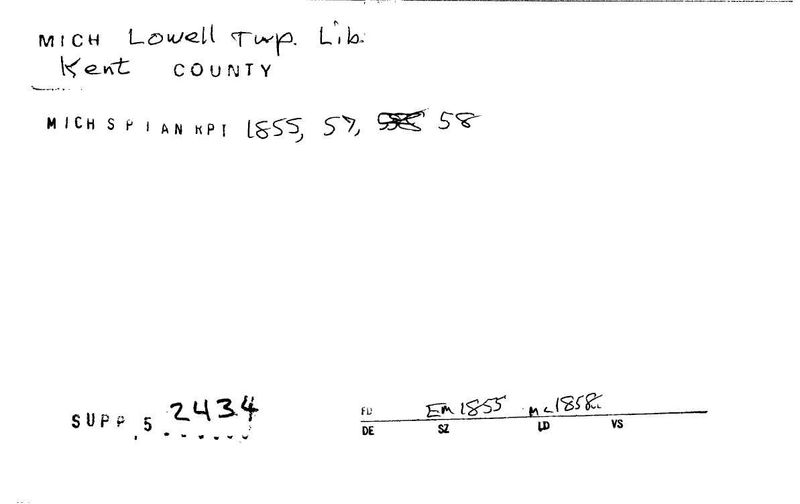 MICH Lowell Twp. Lib.
Kent COUNTY
MICH S P I AN RPT 1855, 57, 58
SUPP. 5 2434
FD EM 1855 Mc 1858
DE SZ LD VS